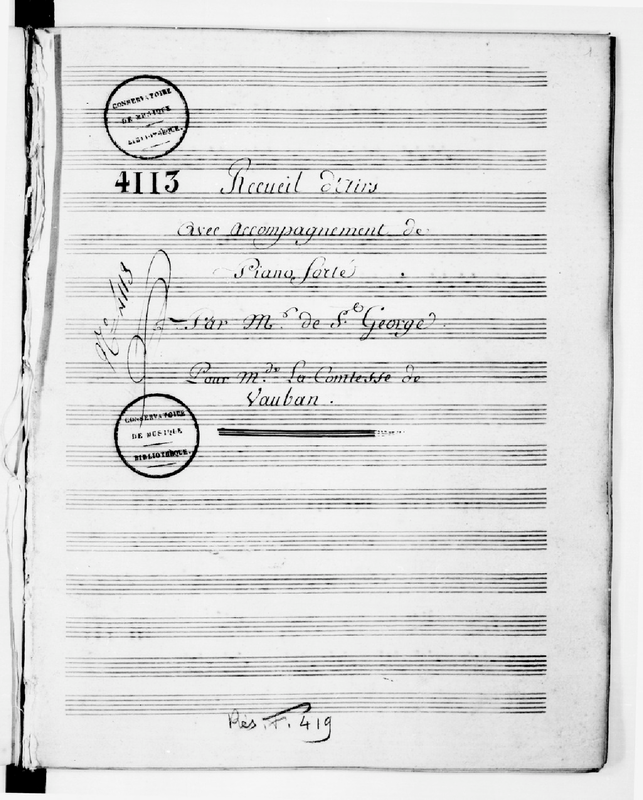 CONSERVATOIRE
DE MUSIQUE
BIBLIOTHÈQUE.
4113 Recueil d'Airs
Avec Accompagnement de
Piano forté
Par Mr. de St. George.
Pour Mde. La Comtesse de
Vauban.
4113
CONSERVATOIRE
DE MUSIQUE
BIBLIOTHÈQUE.
Rés. F. 419